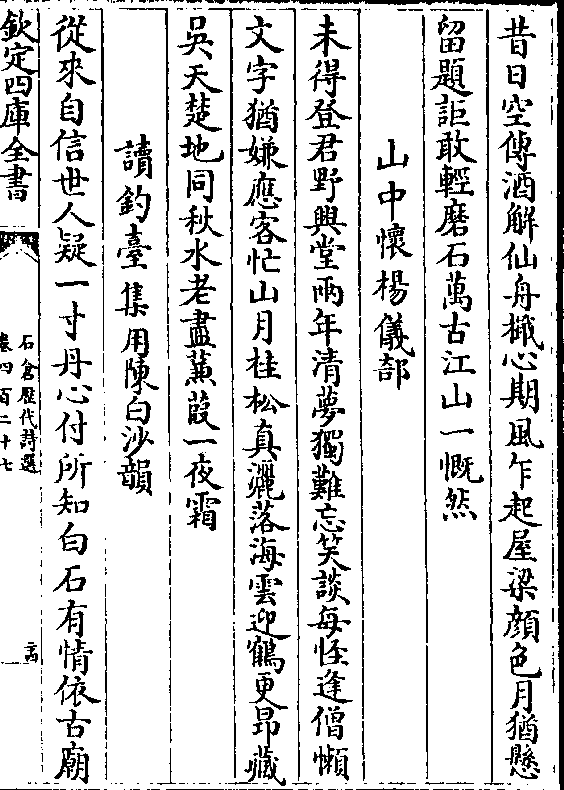 昔日空傳酒解仙舟檝心期風乍起屋梁顏色月猶懸
留題詎敢輕磨石萬古江山一慨然
山中懷楊儀部
未得登君野興堂兩年清夢獨難忘笑談每怪逢僧懶
文字猶嫌應客忙山月桂松真灑落海雲迎鶴更昂藏
吳天楚地同秋水老盡蒹葭一夜霜
讀釣臺集用陳白沙韻
從來自信世人疑一寸丹心付所知白石有情依古廟
欽定四庫全書
石倉歷代詩選
卷四百二十七